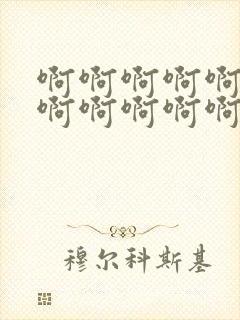 啊啊啊啊啊
啊啊啊啊啊
穆尔科斯基